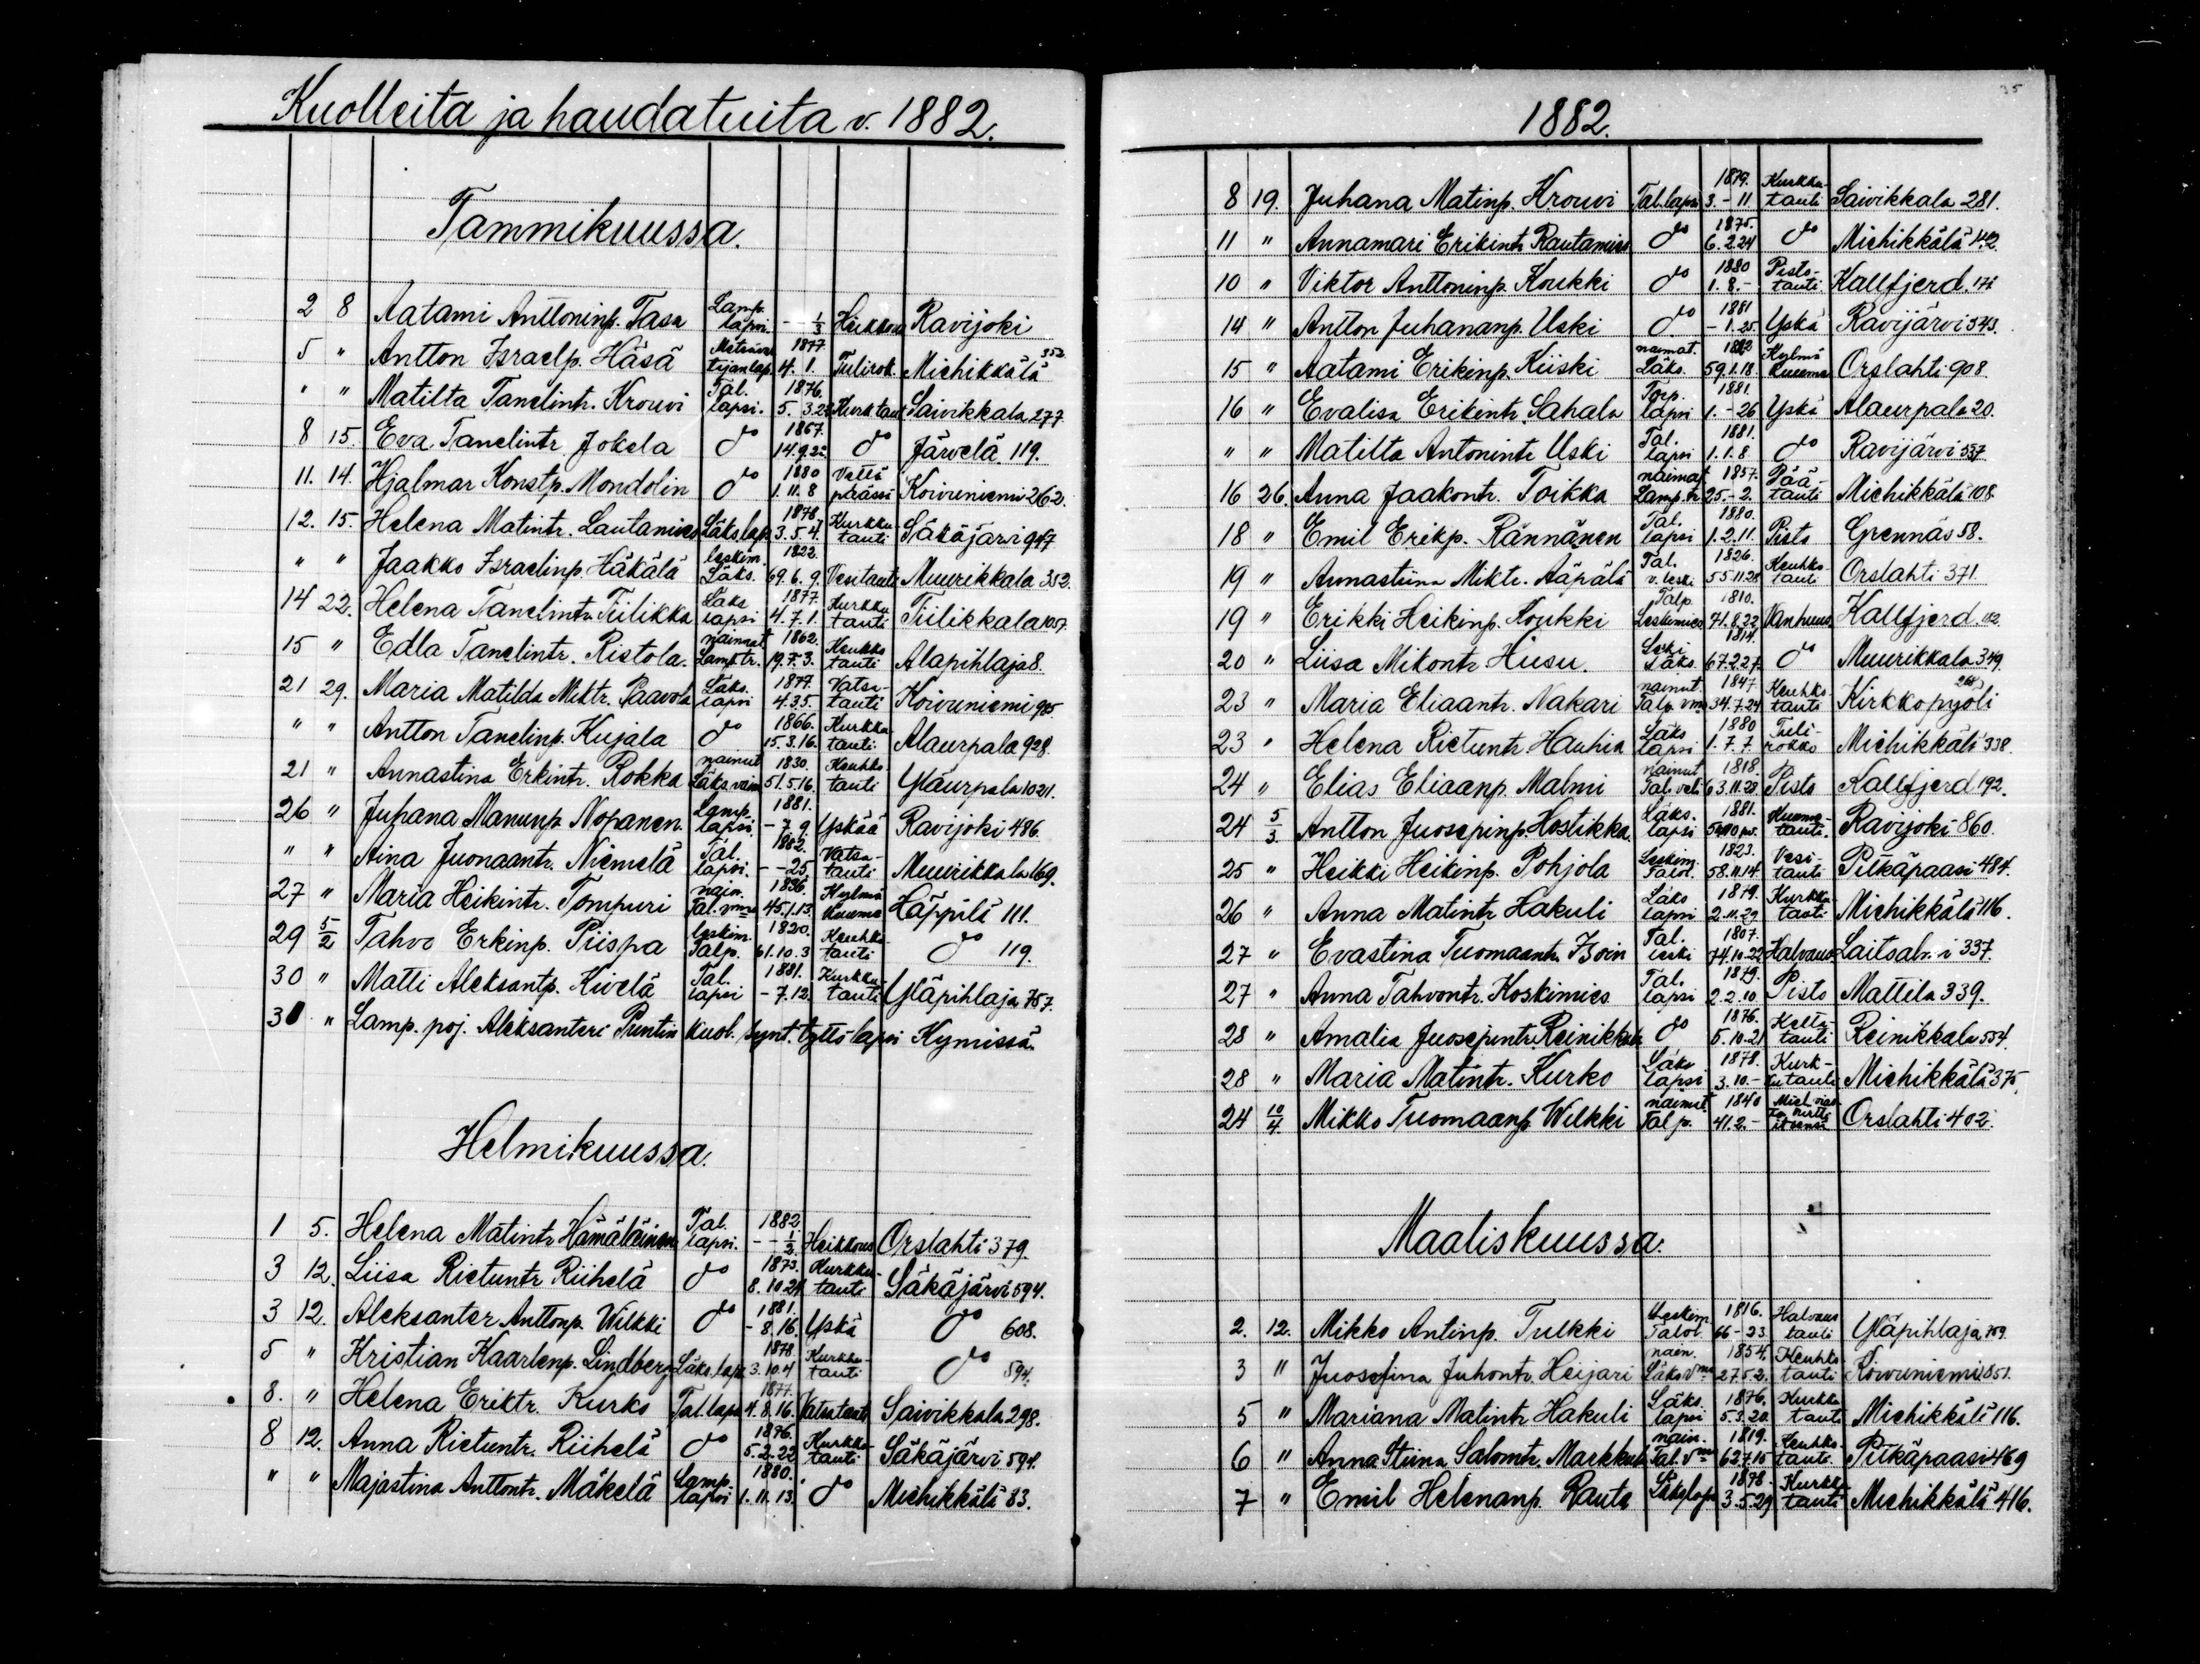 Kuolleita ja haudatuita v. 1882.
Tammikuussa.
2 8 Aatami Anttoninp. Tasa Lamp. lapsi. - - 1/3 Heikkous Ravijoki
5 " Antton Israelp. Häsä tijanlap. 1877 4. 1. Tulirok. Miehikkälä 352
" " Matilta Tanelintr. Krouvi Tal. lapsi. 1876. 5. 3.22 Kurk taut Saivikkala 277
8 15. Eva Tanelintr. Jokela do 1867. 14.9.22 do Järvelä 119.
11. 14. Hjalmar Konstp. Mondolin do 1880 1. 11. 8 Vettä päässä Koivuniemi 262.
12. 15. Helena Matintr. Lautamies Läks lap. 1878. 3. 5. 4. Kurkku tauti Säkäjärvi 947
" " Jaakko Israelinp. Häkälä leskim. Läks. 1822. 69. 6. 9. Vesitauti Muurikkala 352.
14 22. Helena Tanelintr. Tiilikka Läks lapsi 1877. 4. 7. 1. Kurkku tauti Tiilikkala 1057.
15 " Edla Tanelintr. Ristola. naimat. Lamp.tr. 1862. 19. 7. 3. Keuhko tauti Alapihlaja 8.
21 29. Maria Matilda Miktr. Paavola Läks. lapsi 1877. 4.3.5. Vatsa- tauti Koivuniemi 985.
" " Antton Tanelinp. Kujala do 1866. 15. 3. 16. Kurkku tauti Alaurpala 928.
21 " Annastina Erkintr. Rokka nainut Läks vaim 1830. 51. 5.16. Keuhko- tauti Yläurpala 1021.
26 " Juhana Manunp. Nopanen. Lamp. lapsi. 1881. - 7. 9. Yskää Ravijoki 486.
" " Aina Juonaantr. Niemelä Tal. lapsi. 1882. - - 25. Vatsa- tauti Muurikkala 169.
27 " Maria Heikintr. Tompuri nain. Tal. vmo 1836. 45. 1. 13. Kylmä Kuuma Häppilä 111.
29 5/2 Tahvo Erkinp. Piispa leskim. Talp. 1820. 61. 10. 3 Keuhko- tauti do 119.
30 " Matti Aleksantp. Kivelä Tal. lapsi 1881. - 7. 12. Kurkku tauti Yläpihlaja 757.
31 " Lamp. poj. Aleksanteri Puntin kuol. synt. tyttölapsi Kymissä.
Helmikuussa.
1 5. Helena Matintr. Hämäläinen Tal. lapsi. 1882. - - 1/2. Heikkous Orslahti 379.
3 12. Liisa Rietuntr. Riihelä do 1873. 8. 10 24 Kurkku- tauti Säkäjärvi 594.
3 12. Aleksanter Anttonp. Wilkki do 1881. - 8. 16. Yskä do 608.
5 " Kristian Kaarlenp. Lindberg Läks. lap 1878. 3. 10. 4 Kurkku- tauti do 594.
8. " Helena Eriktr. Kurko Tal. laps 1877. 4. 8. 16. Vatsa tauti Saivikkala 298.
8 12. Anna Rietuntr. Riihelä do 1876. 5. 2. 22 Kurkku- tauti Säkäjärvi 594.
" " Majastina Anttontr. Mäkelä Lamp. lapsi 1880. 1. 11. 13. do Miehikkälä 83.
35
1882.
8 19. Juhana Matinp. Krouvi Tal. lapsi 1879. 3. - 11 Kurkku- tauti Saivikkala 281.
11 " Annamari Erikintr. Rautamies do 1875. 6. 2 24 do Miehikkälä 142.
10 " Viktor Anttoninp. Koukki do 1880 1. 8. - Pisto- tauti Kallfjerd.
14 " Antton Juhananp. Uski do 1881 - 1. 25. Yskä Ravijärvi 543.
15 " Aatami Erikinp. Kiiski naimat. Läks. 59. 1. 18. Kylmä Kuuma Orslahti 908.
16 " Evalisa Erikintr. Sahala Torp. lapsi 1881. 1. - 26 Yskä Alaurpala 20.
" " Matilta Antonintr Uski Tal. lapsi 1881. 1. 1. 8 do Ravijärvi 537
16 26. Anna Jaakontr. Toikka naimat Lamp. tr 1857. 25. - 2. Pää- tauti Miehikkälä 108.
18 " Emil Erikp. Rännänen Tal. lapsi 1880. 1. 2. 11. Pisto Grennäs 58.
19 " Annastiina Miktr. Aäpälä Tal. v. leski 1826. 55 11 28 Keuhko- tauti Orslahti 371.
19 " Erikki Heikinp. Koukki Talp. Leskimies 1810. 71. 8. 22. Vanhuus Kallfjerd. 112.
20 " Liisa Mikontr Husu. Leski Läks. 1814. 67. 2. 27. do Muurikkala 349.
23 " Maria Eliaantr. Nakari nainut. Talp. vmo 1847 34. 7. 24 Keuhko- tauti Kirkkopyöli
23 " Helena Rietuntr Hauhia Läks lapsi 1880 1. 7. 7. Tuli- rokko Miehikkälä 338.
24 " Elias Eliaanp. Malmi nainut Tal. veli 1818. 63. 11. 28. Pisto Kallfjerd 192.
24 5/3 Antton Juosepinp. Hostikka. Läks. lapsi 1881. Kuuma- tauti. Ravijoki 860.
25 " Heikki Heikinp. Pohjola Leskim. Talol. 1823. 58. 11. 14. Vesi- tauti Pitkäpaasi 484.
26 " Anna Matintr Hakuli Läks lapsi 1879. 2. 11. 29 Kurkku- tauti Miehikkälä 116.
27 " Evastina Tuomaantr. Isoin Tal. leski 1807. 74. 10. 22 Halvaus Laitsalmi 337.
27 " Anna Tahvontr. Koskimies Tal. lapsi 1879. 2. 2. 10 Pisto Mattila 339.
28 " Amalia Juosepintr. Reinikkala do 1876. 5. 10. 21 Kelta- tauti Reinikkala 554.
28 " Maria Matintr. Kurko Läks lapsi 1878. 3. 10. - Kurk- kutauti Miehikkälä 375.
24 10/4 Mikko Tuomaanp. Wilkki naimat. Talp. 1840 41. 2. - Orslahti 402.
Maaliskuussa.
2. 12. Mikko Antinp. Tulkki Leskim. Talol. 1816. 66 - 23. Halvaus tauti Yläpihlaja 759.
3 " Juosefina Juhontr. Heijari nain. Läks vmo 1854. 27. 5. 2. Keuhko- tauti Koivuniemi 851.
5 " Mariana Matintr Hakuli Läks. lapsi 1876. 5. 3. 20. Kurkku tauti Miehikkälä 116.
6 " Anna Stiina Salomtr. Markkula nain. Tal. Vmo 1819. 62. 7. 15 Keuhko- tauti. Pitkäpaasi 469
7 " Emil Helenanp. Rauta Läks lapsi 1878. 3. 5. 29, Kurkku- tauti Miehikkälä 416.